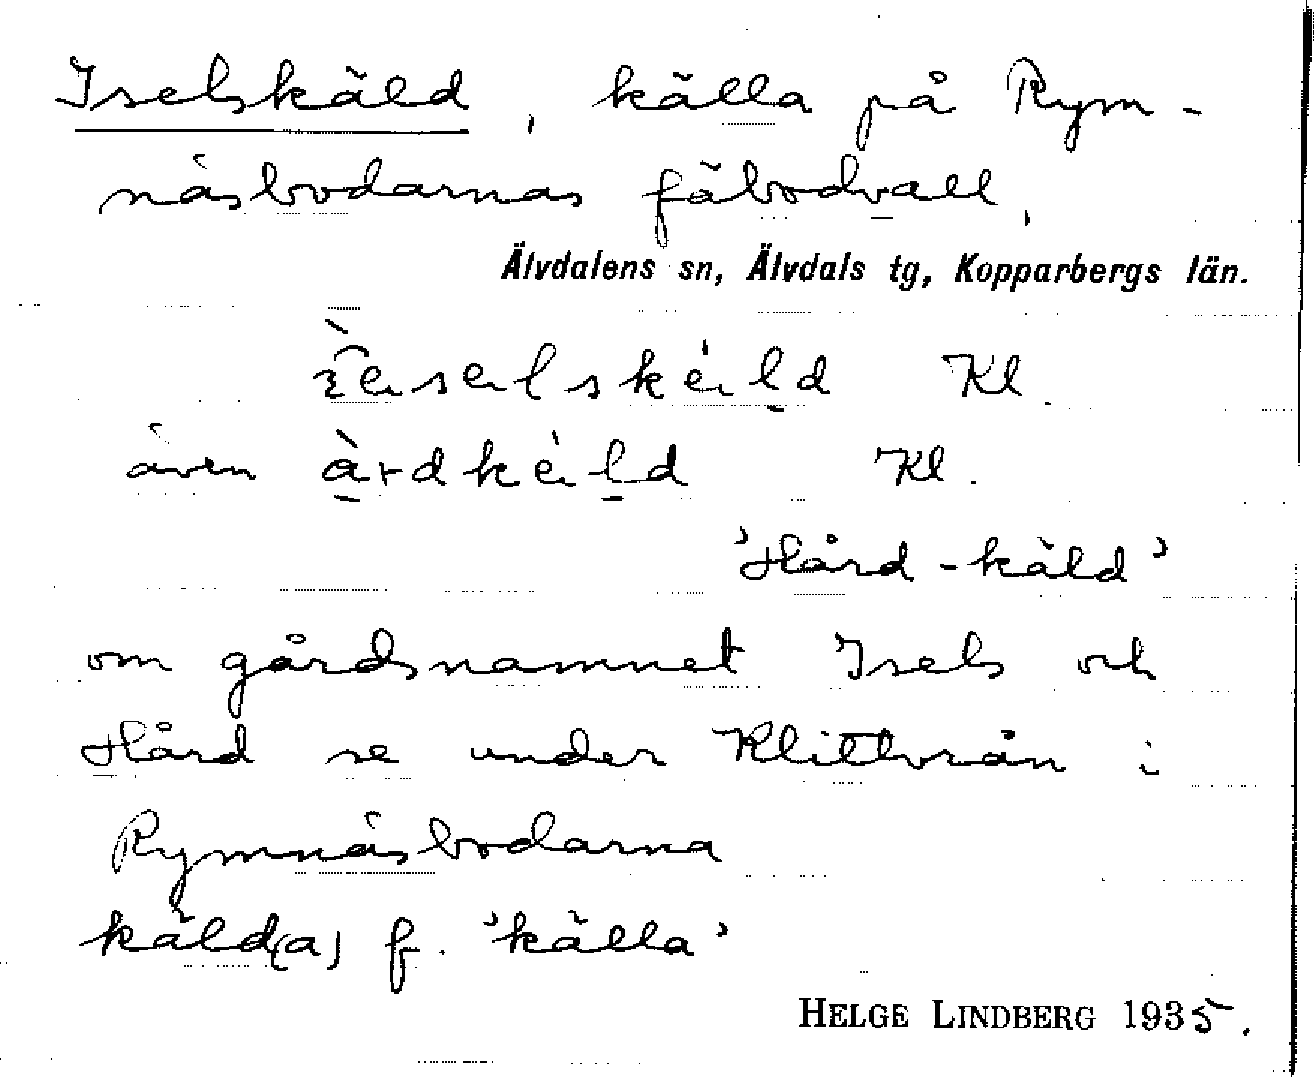 Iselskäld, källa på Rym-
näsbodarnas fäbodvall,
Älvdalens sn, Älvdals tg, Kopparbergs län.
Kl.
även àrdkèld Kl.
'Hård-käld'
om gårdsnamnet Isels och
Hård se under Klittvrån i
Rymnäsbodarna
käld(a) f. 'källa'
HELGE LINDBERG 1935.